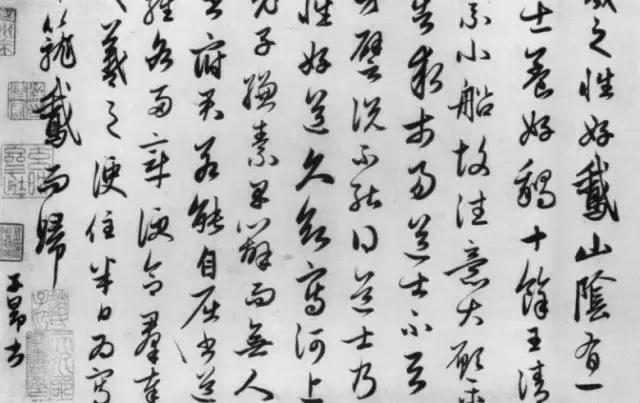 羲之性好鵞山陰有一
士養好鵝十餘王清
乘小船故往意大願樂
告求市易道士不与
譬說不能得道士乃
性好道久欲寫河上
老子縑素早辦而無人
書府君若能自屈書道
經各兩章便合羣奉
羲之便住半日為寫
籠鵞而歸
子昂書